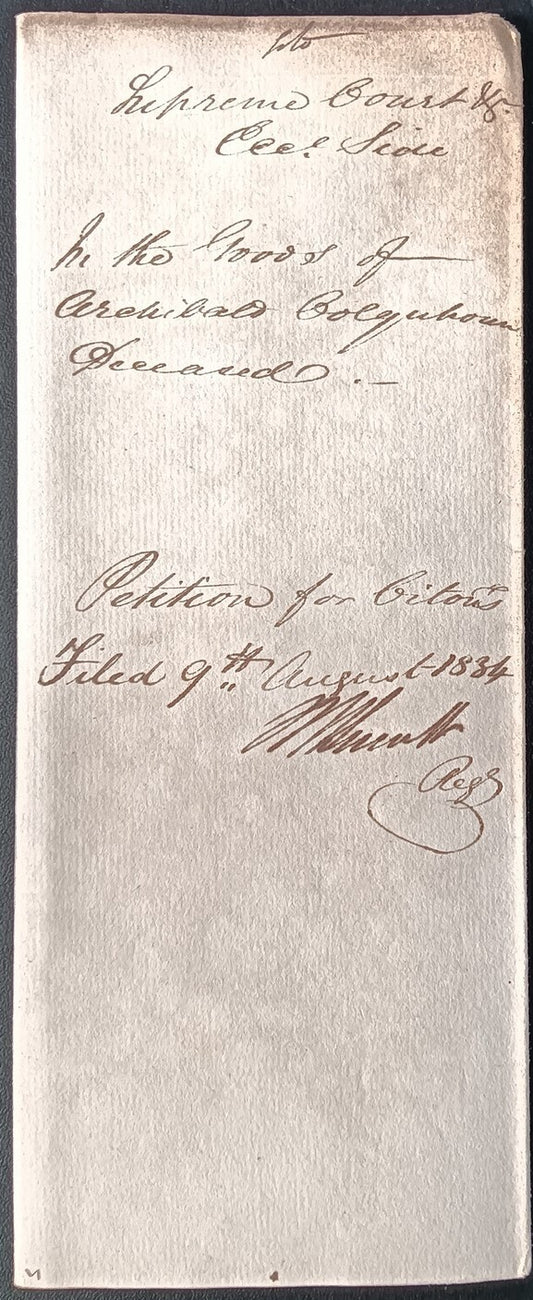 Supreme Court &c.
Eccl. Side
In the Goods of
Archibald Colquhoun
Deceased . —
Petition for Citons
Filed 9th August 1834
Regr